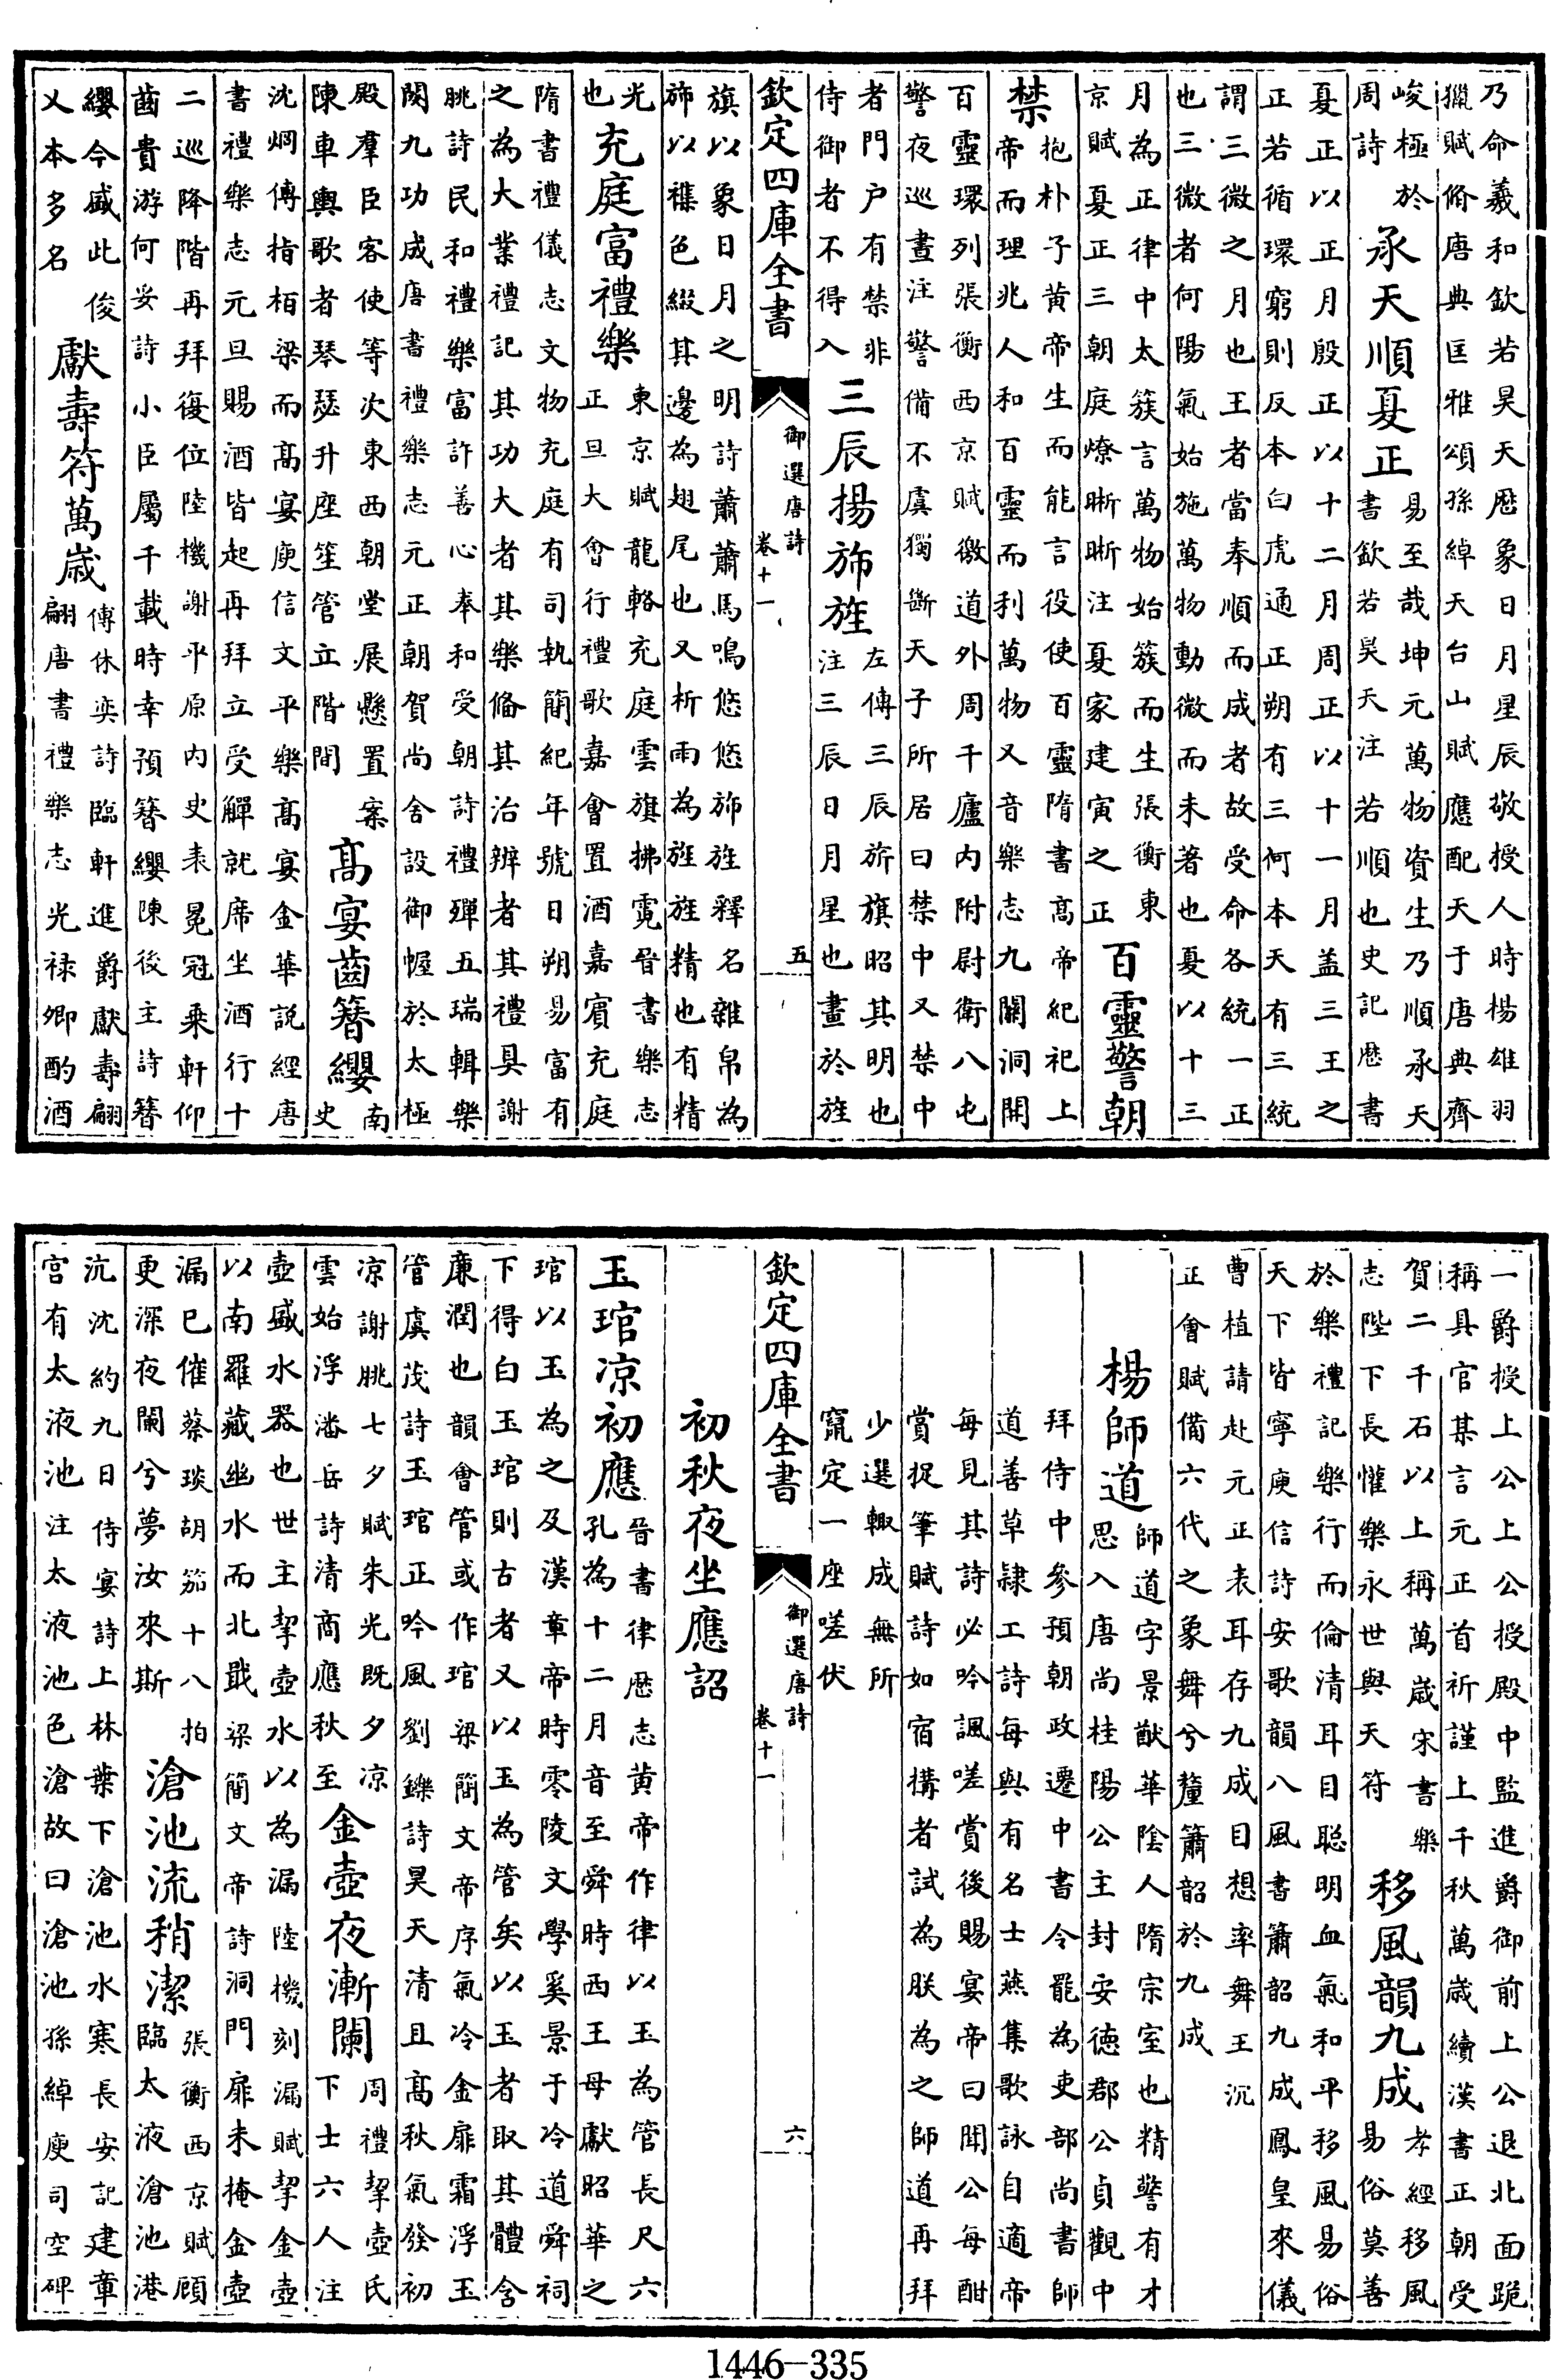 乃命羲和欽若昊天厯象日月星辰敬授人時楊雄羽
獵賦脩唐典匡雅頌孫綽天台山賦應配天于唐典齊
峻極於
周詩
承天順夏正
易至哉坤元萬物資生乃順承天
書欽若昊天注若順也史記厯書
夏正以正月殷正以十二月周正以十一月盖三王之
正若循環窮則反本白虎通正朔有三何本天有三統
謂三微之月也王者當奉順而成者故受命各統一正
也三微者何陽氣始施萬物動微而未著也夏以十三
月為正律中太簇言萬物始簇而生張衡東
京賦夏正三朝庭燎晣晣注夏家建寅之正
百靈警朝
禁
抱朴子黄帝生而能言役使百靈隋書髙帝紀祀上
帝而理兆人和百靈而利萬物又音樂志九關洞開
百靈環列張衡西京賦徼道外周千廬内附尉衛八屯
警夜巡晝注警備不虞獨斷天子所居曰禁中又禁中
者門户有禁非
侍御者不得入
三辰揚斾旌
左傳三辰旂旗昭其明也
注三辰日月星也畫於旌
欽定四庫全書
御選唐詩
卷十一
五
旗以象日月之明詩蕭蕭馬鳴悠悠斾旌釋名雜帛為
斾以襍色綴其邊為翅尾也又析雨為旌旌精也有精
光
也
充庭富禮樂
東京賦龍輅充庭雲旗拂霓晉書樂志
正旦大會行禮歌嘉會置酒嘉賓充庭
隋書禮儀志文物充庭有司執簡紀年號日朔易富有
之為大業禮記其功大者其樂備其治辨者其禮具謝
朓詩民和禮樂富許善心奉和受朝詩禮殫五瑞輯樂
闋九功成唐書禮樂志元正朝賀尚舍設御幄於太極
殿羣臣客使等次東西朝堂展懸置案
陳車輿歌者琴瑟升座笙管立階間
髙宴齒簪纓
南
史
沈烱傳指栢梁而髙宴庾信文平樂髙宴金華説經唐
書禮樂志元旦賜酒皆起再拜立受觶就席坐酒行十
二巡降階再拜復位陸機謝平原内史表冕冠乘軒仰
齒貴游何妥詩小臣屬千載時幸預簪纓陳後主詩簪
纓今盛此俊
乂本多名
獻壽符萬歳
傅休奕詩臨軒進爵獻壽翩
翩唐書禮樂志光禄卿酌酒
一爵授上公上公授殿中監進爵御前上公退北面跪
稱具官某言元正首祈謹上千秋萬歳續漢書正朝受
賀二千石以上稱萬歳宋書樂
志陛下長懽樂永世與天符
移風韻九成
孝經移風
易俗莫善
於樂禮記樂行而倫清耳目聰明血氣和平移風易俗
天下皆寧庾信詩安歌韻八風書簫韶九成鳳皇來儀
曹植請赴元正表耳存九成目想率舞王沉
正會賦備六代之象舞兮釐簫韶於九成
楊師道
師道字景猷華陰人隋宗室也精警有才
思入唐尚桂陽公主封安德郡公貞觀中
拜侍中參預朝政遷中書令罷為吏部尚書師
道善草隷工詩每與有名士燕集歌詠自適帝
每見其詩必吟諷嗟賞後賜宴帝曰聞公每酣
賞捉筆賦詩如宿構者試為朕為之師道再拜
少選輒成無所
竄定一座嗟伏
欽定四庫全書
御選唐詩
卷十一
六
初秋夜坐應詔
玉琯凉初應
晉書律厯志黄帝作律以玉為管長尺六
孔為十二月音至舜時西王母獻昭華之
琯以玉為之及漢章帝時零陵文學奚景于冷道舜祠
下得白玉琯則古者又以玉為管矣以玉者取其體含
廉潤也韻會管或作琯梁簡文帝序氣冷金扉霜浮玉
管虞茂詩玉琯正吟風劉鑠詩昊天清且髙秋氣發初
凉謝朓七夕賦朱光既夕凉
雲始浮潘岳詩清商應秋至
金壺夜漸闌
周禮挈壺氏
下士六人注
壺盛水器也世主挈壺水以為漏陸機刻漏賦挈金壺
以南羅藏幽水而北戢梁簡文帝詩洞門扉未掩金壺
漏已催蔡琰胡笳十八拍
更深夜闌兮夢汝來斯
滄池流稍潔
張衡西京賦顧
臨太液滄池漭
沆沈約九日侍宴詩上林葉下滄池水寒長安記建章
宫有太液池注太液池色滄故曰滄池孫綽庾司空碑
1446-335